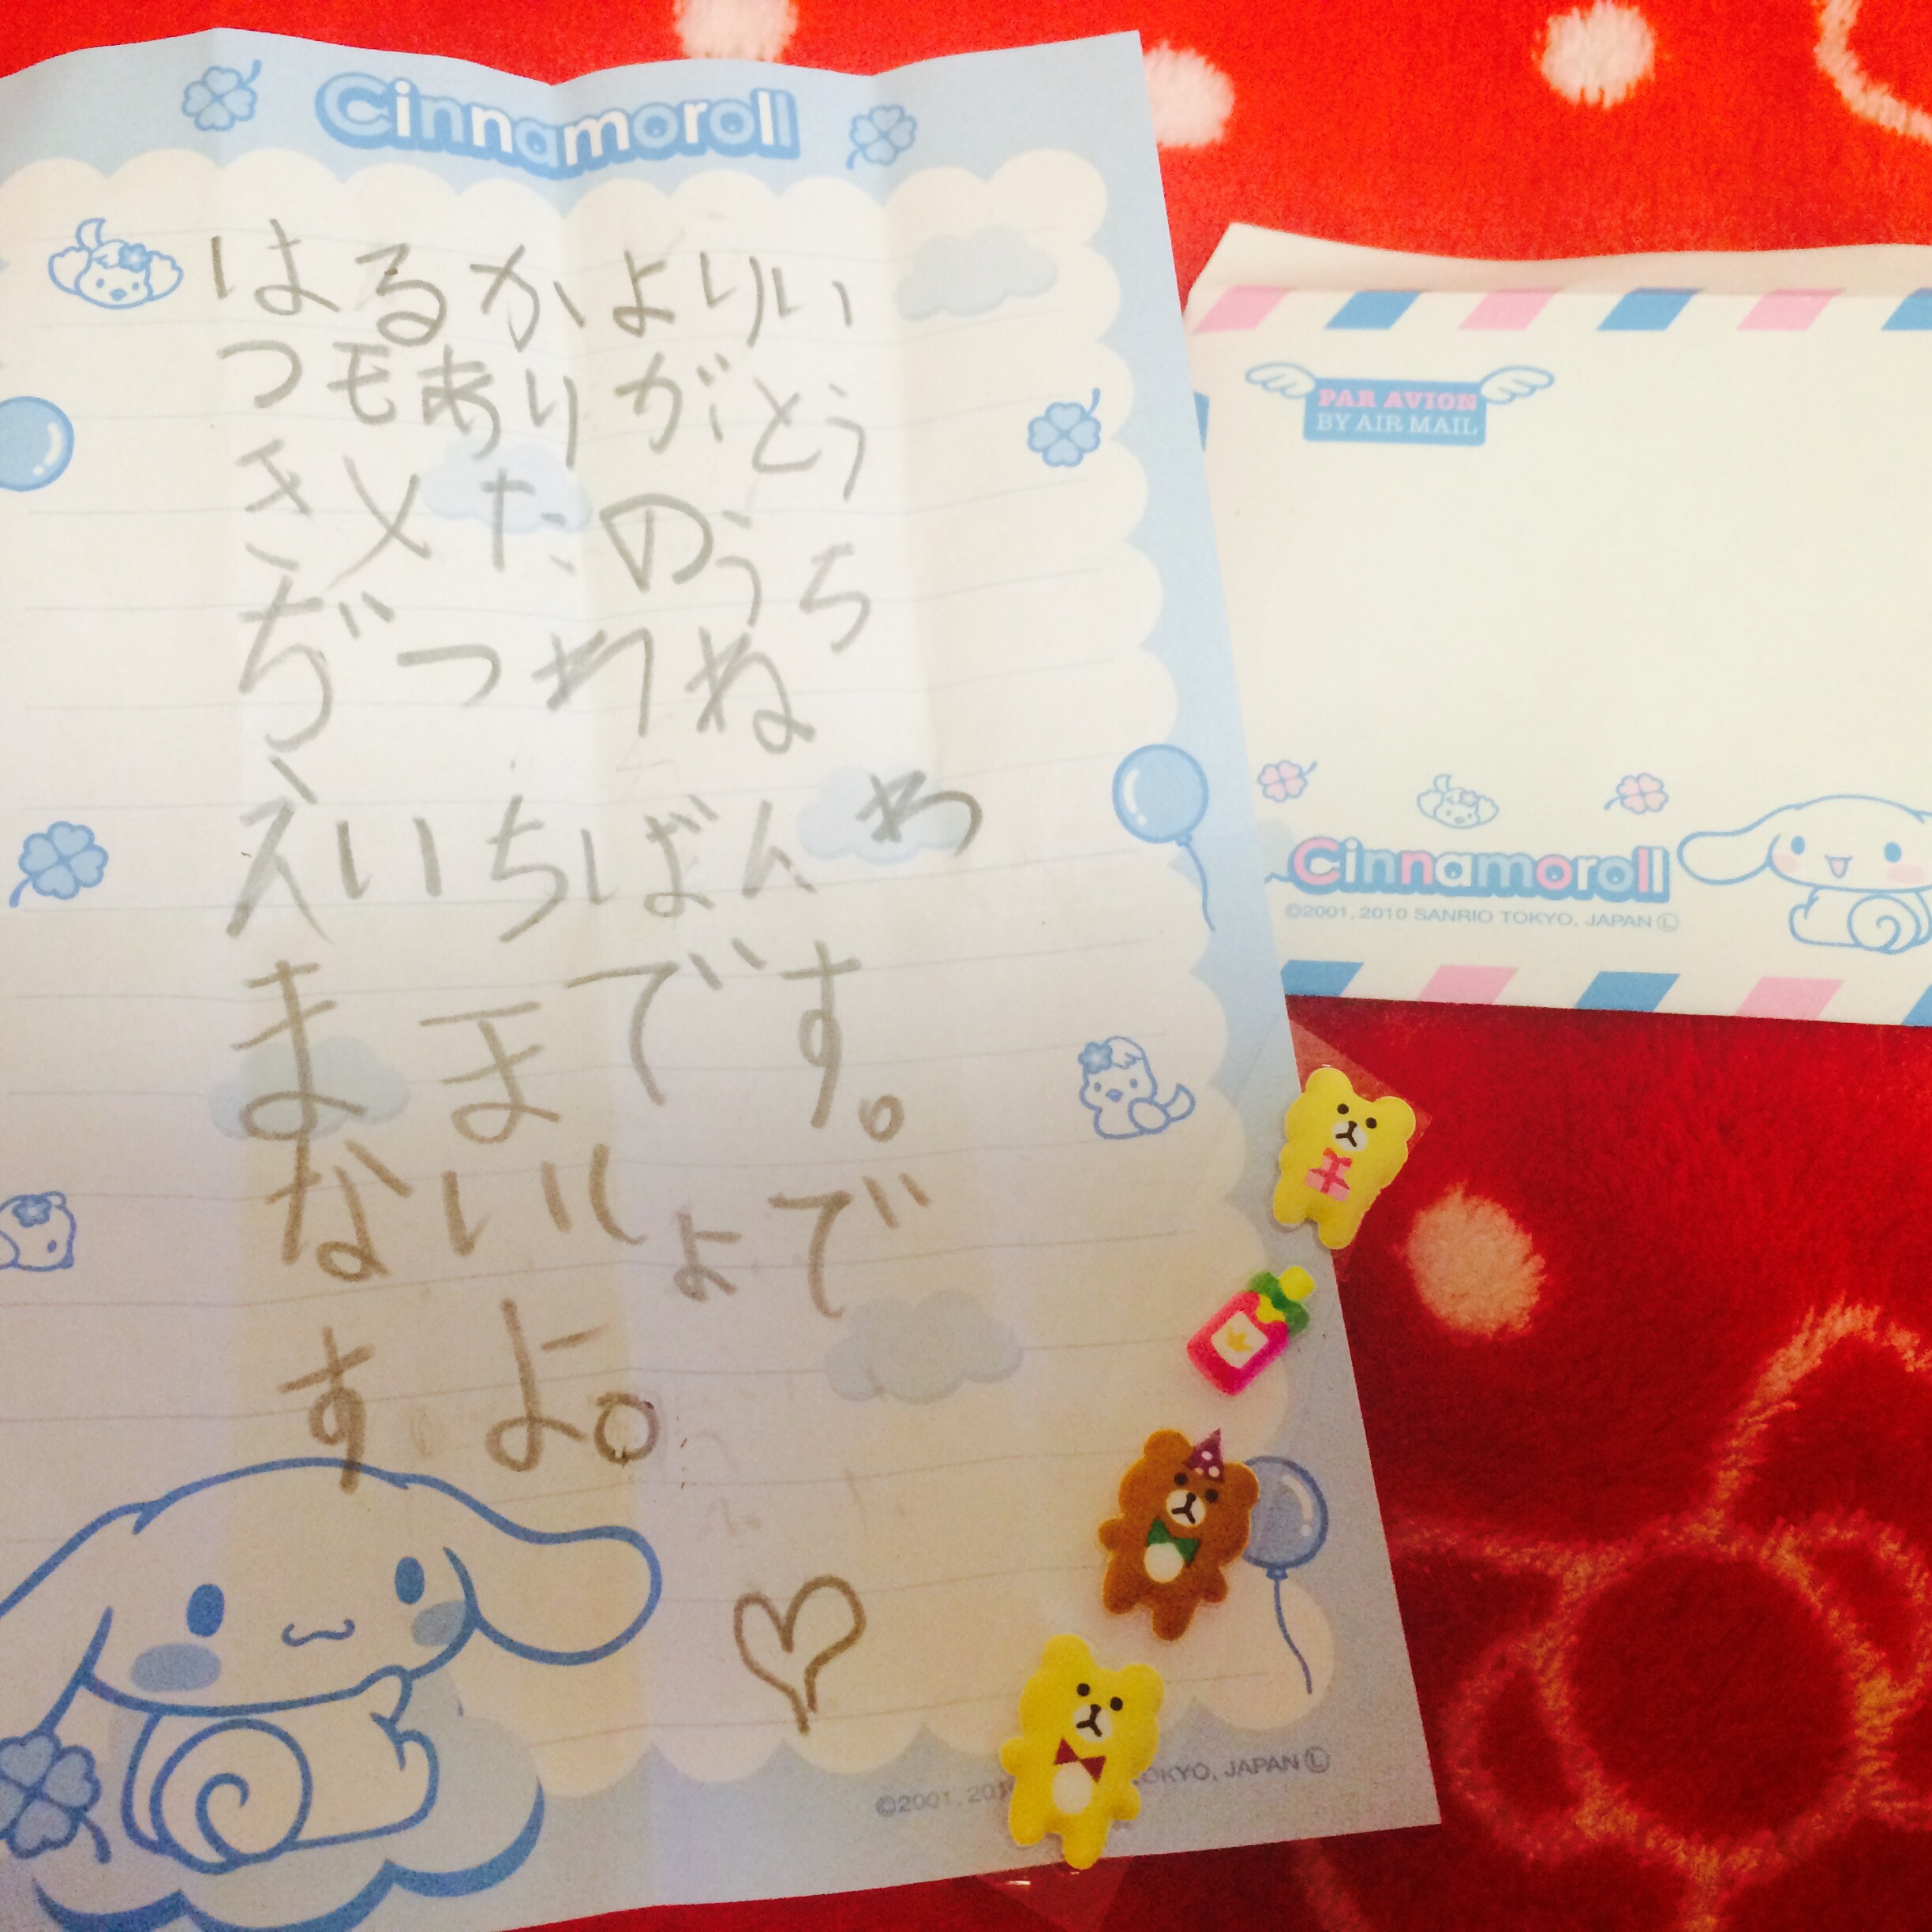 Cinnamoroll
はるかよりい
つモありがとう
きメたのうち
ぢつわね
えいちばんわ
まほです。
ないしょで
すよ。
©2001, 201 OKYO, JAPAN Ⓛ
PAR AVION
BY AIR MAIL
Cinnamoroll
©2001, 2010 SANRIO TOKYO, JAPAN Ⓛ